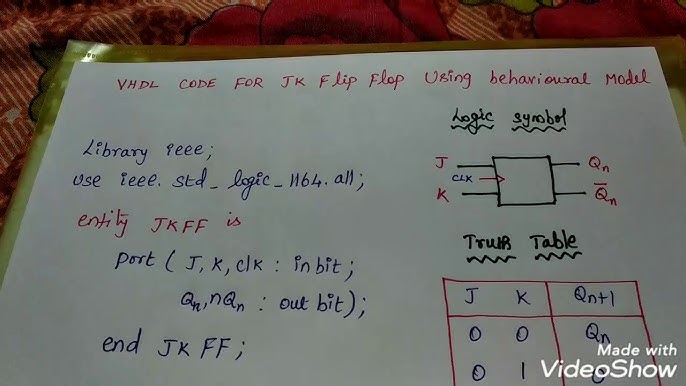 VHDL CODE FOR JK Flip Flop Using behavioural Model
Library ieee;
use ieee. std_logic_1164. all;
entity JKFF is
port ( J, K, clk : in bit ;
Qn, nQn : out bit);
end JK FF ;
Logic symbol
J
CLK
K
Qn
Q̅n
Truth Table
J K Qn+1
0 0 Qn
0 1 0
Made with
VideoShow